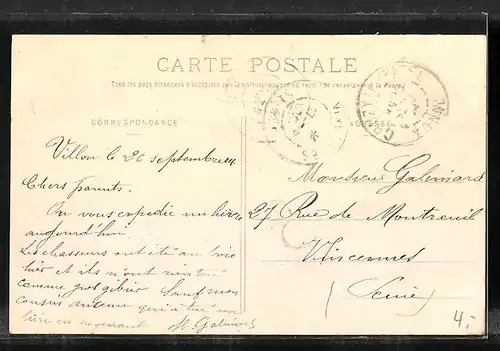 CARTE POSTALE
Tous les pays étrangers n'acceptent pas la correspondance au recto (se renseigner à la Poste)
CORRESPONDANCE
ADRESSE
Villon le 26 septembre
Chers parents.
On vous expedie un lièvre
aujourd'hui
Les chasseurs ont été au bois
hier et ils n'ont rien tué
comme gros gibier Sauf mon
cousin qui a tué un
lièvre en revenant M. Galimard
Monsieur Galimard
27 Rue de Montreuil
Vincennes
(Seine)
4,-